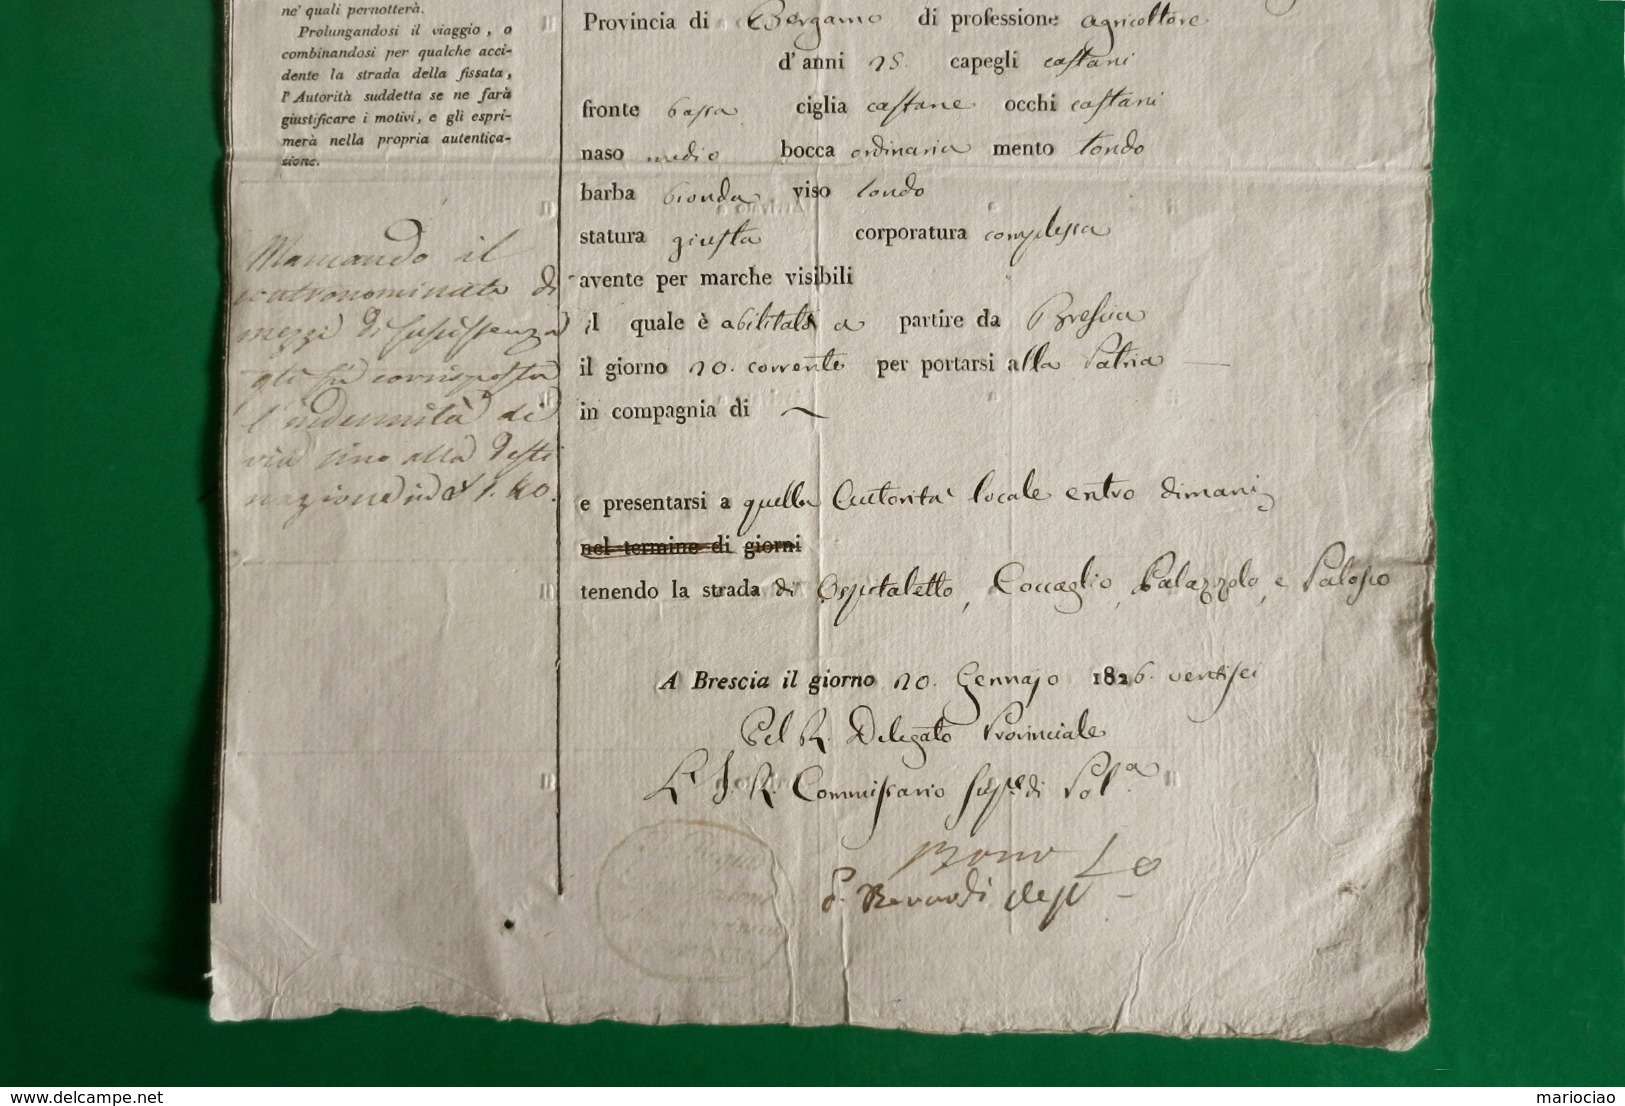 ne' quali pernotterà.
Prolungandosi il viaggio, o
combinandosi per qualche acci-
dente la strada della fissata,
l'Autorità suddetta se ne farà
giustificare i motivi, e gli espri-
merà nella propria autentica-
sione.
Mancando il
contronominato di
mezzi di sussistenza
gli fu corrisposta
l'indennità di
via sino alla desti
nazione in
Provincia di Bergamo di professione agricoltore
d'anni 25. capegli castani
fronte bassa ciglia castane occhi castani
naso medio bocca ordinaria mento tondo
barba bionda viso tondo
statura giusta corporatura complessa
avente per marche visibili
il quale è abilitato a partire da Brescia
il giorno 20. corrente per portarsi alla Patria
in compagnia di
e presentarsi a quella Autorità locale entro dimani
nel termine di giorni
tenendo la strada di Ospitaletto, Coccaglio, Palazzolo, e Palosco
A Brescia il giorno 20. Gennajo 1826. ventisei
Pel R. Delegato Provinciale
L'I. R. Commissario Sup.e di Pol.a
delcampe.net
mariociao